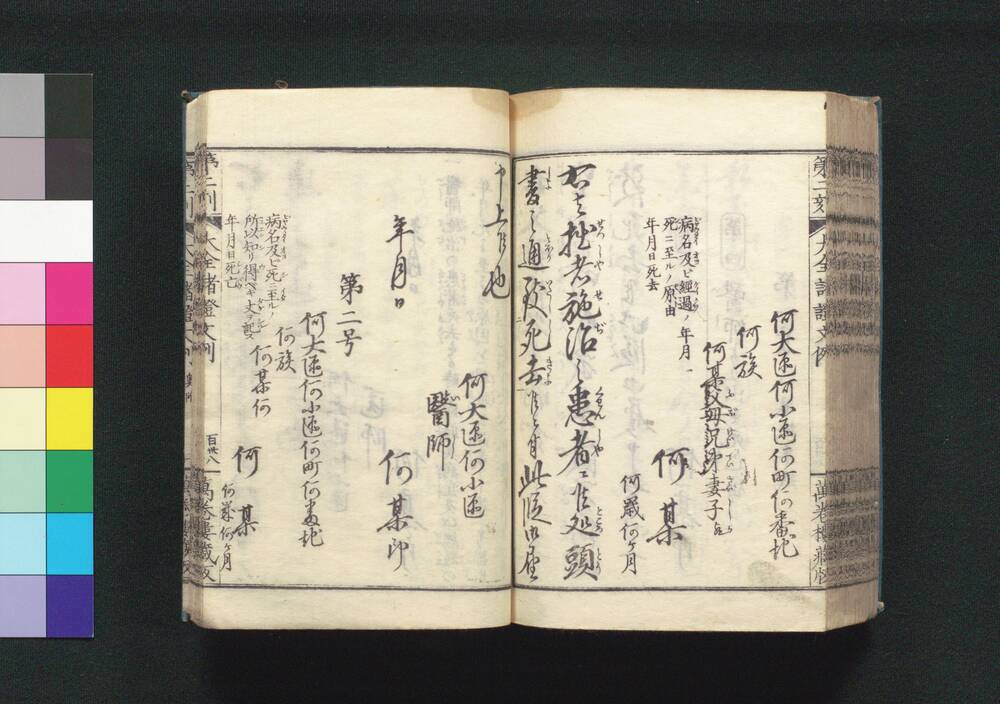 何大區何小區何町何番地
何族
何某父母兄弟妻子等
何某
何歳何ヶ月
病名及ビ經過ノ年月
死ニ至ルノ原由
年月日死去
右者拙者施治之患者ニ候処頭
書之通致死去候ニ付此段御届
申上候也
何大區何小區
醫師
何某印
年月日
第二号
何大區何小區何町何番地
何族
何某何
何某
何歳何ヶ月
病名及ビ死ニ至ルノ
所以知リ得ベキ丈ヲ記ス
年月日死亡
大全諸證文例
百卅八
萬巻樓藏版